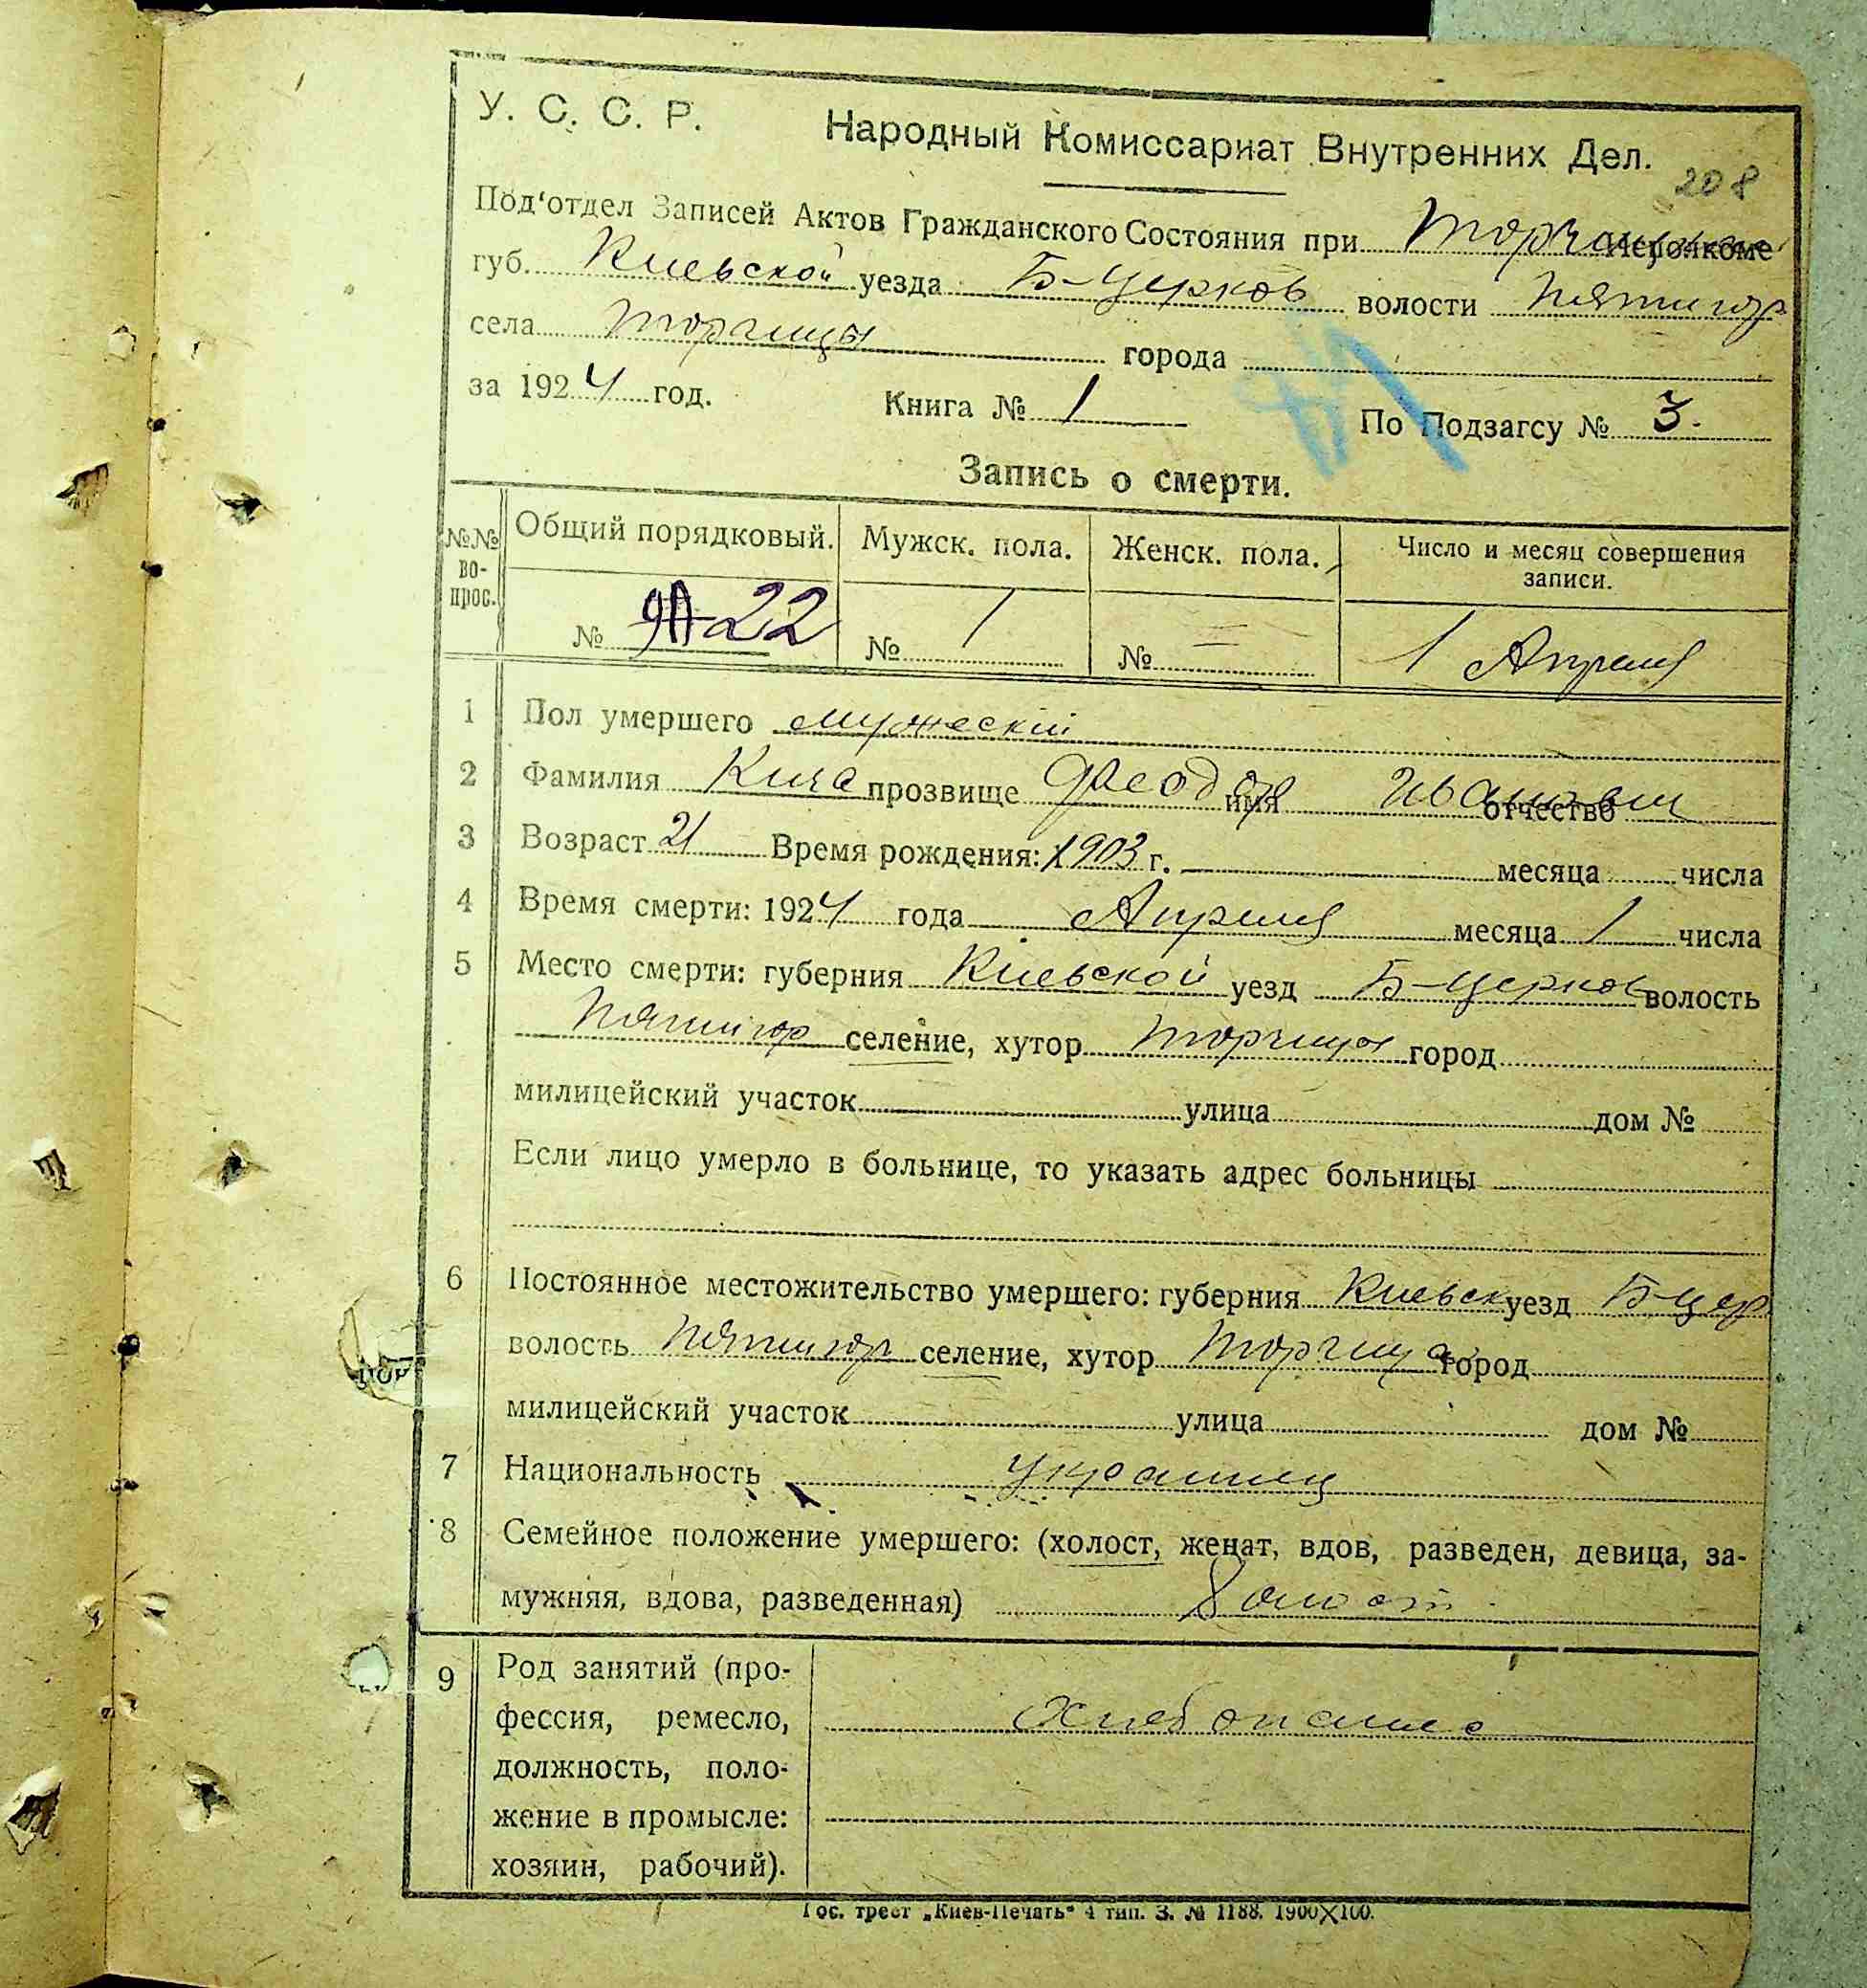 У. С. С. Р.
Народный Комиссариат Внутренних Дел.
208
Под'отдел Записей Актов Гражданского Состояния при
губ. Киевской уезда Б-Церков волости Пятигор
села Торчицы города
за 1924 год. Книга № 1 По Подзагсу № 3.
Запись о смерти.
№№ вопрос. Общий порядковый. Мужск. пола. Женск. пола. Число и месяц совершения записи.
№ 22 № 1 № = 1 Апреля
1 Пол умершего мужескій
2 Фамилия прозвище Феодор имя Иванович отчество
3 Возраст 21 Время рождения: 1903 г. месяца числа
4 Время смерти: 1924 года Апреля месяца 1 числа
5 Место смерти: губерния Киевской уезд Б-Церков волость
Пятигор селение, хутор Торчица город
милицейский участок улица дом №
Если лицо умерло в больнице, то указать адрес больницы
6 Постоянное местожительство умершего: губерния Киевск уезд Б-цер
волость Пятигор селение, хутор Торчица город
милицейский участок улица дом №
7 Национальность украинец
8 Семейное положение умершего: (холост, женат, вдов, разведен, девица, за-
мужняя, вдова, разведенная) Холост
9 Род занятий (про-
фессия, ремесло,
хлебопашес
должность, поло-
жение в промысле:
хозяин, рабочий).
Гос. трест „Киев-Печать" 4 тип. З. № 1188. 1900X100.